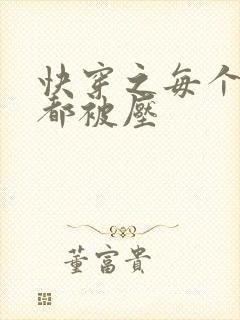 快穿之每个
都被壓
董富貴